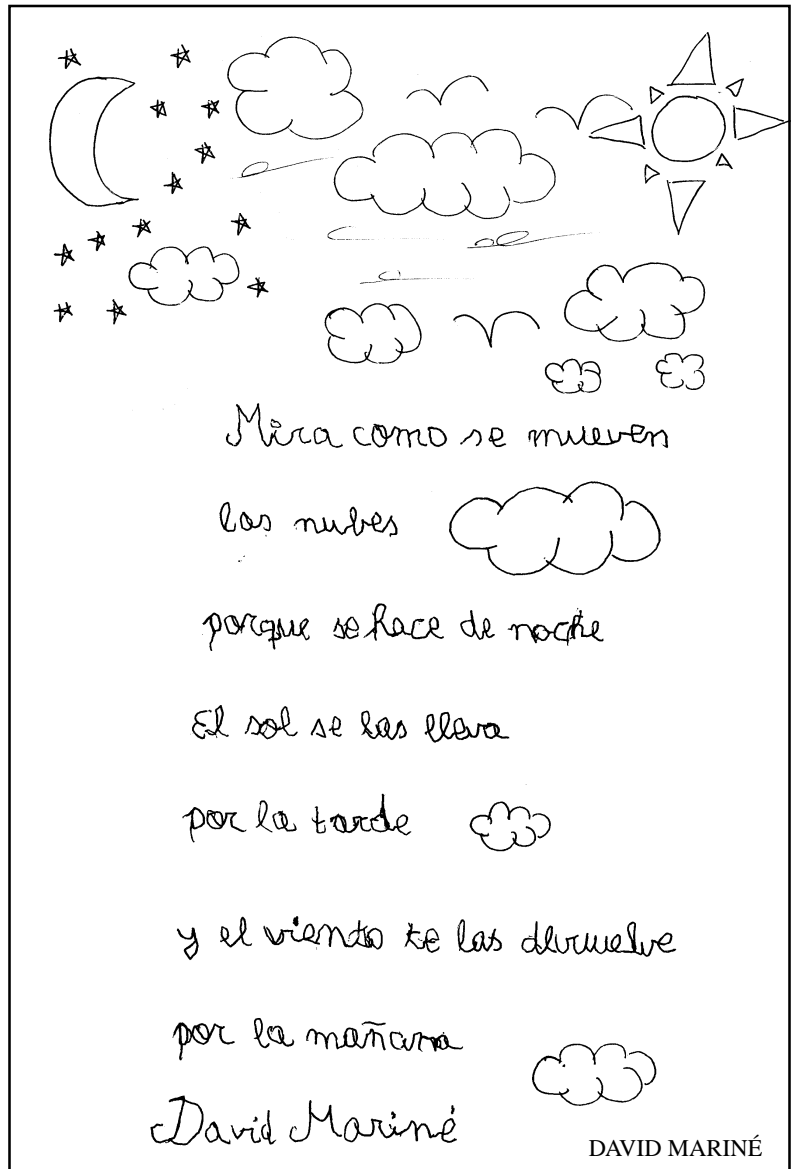 Mira como se mueven
las nubes
porque se hace de noche
El sol se las lleva
por la tarde
y el viento te las devuelve
por la mañana
David Mariné
DAVID MARINÉ